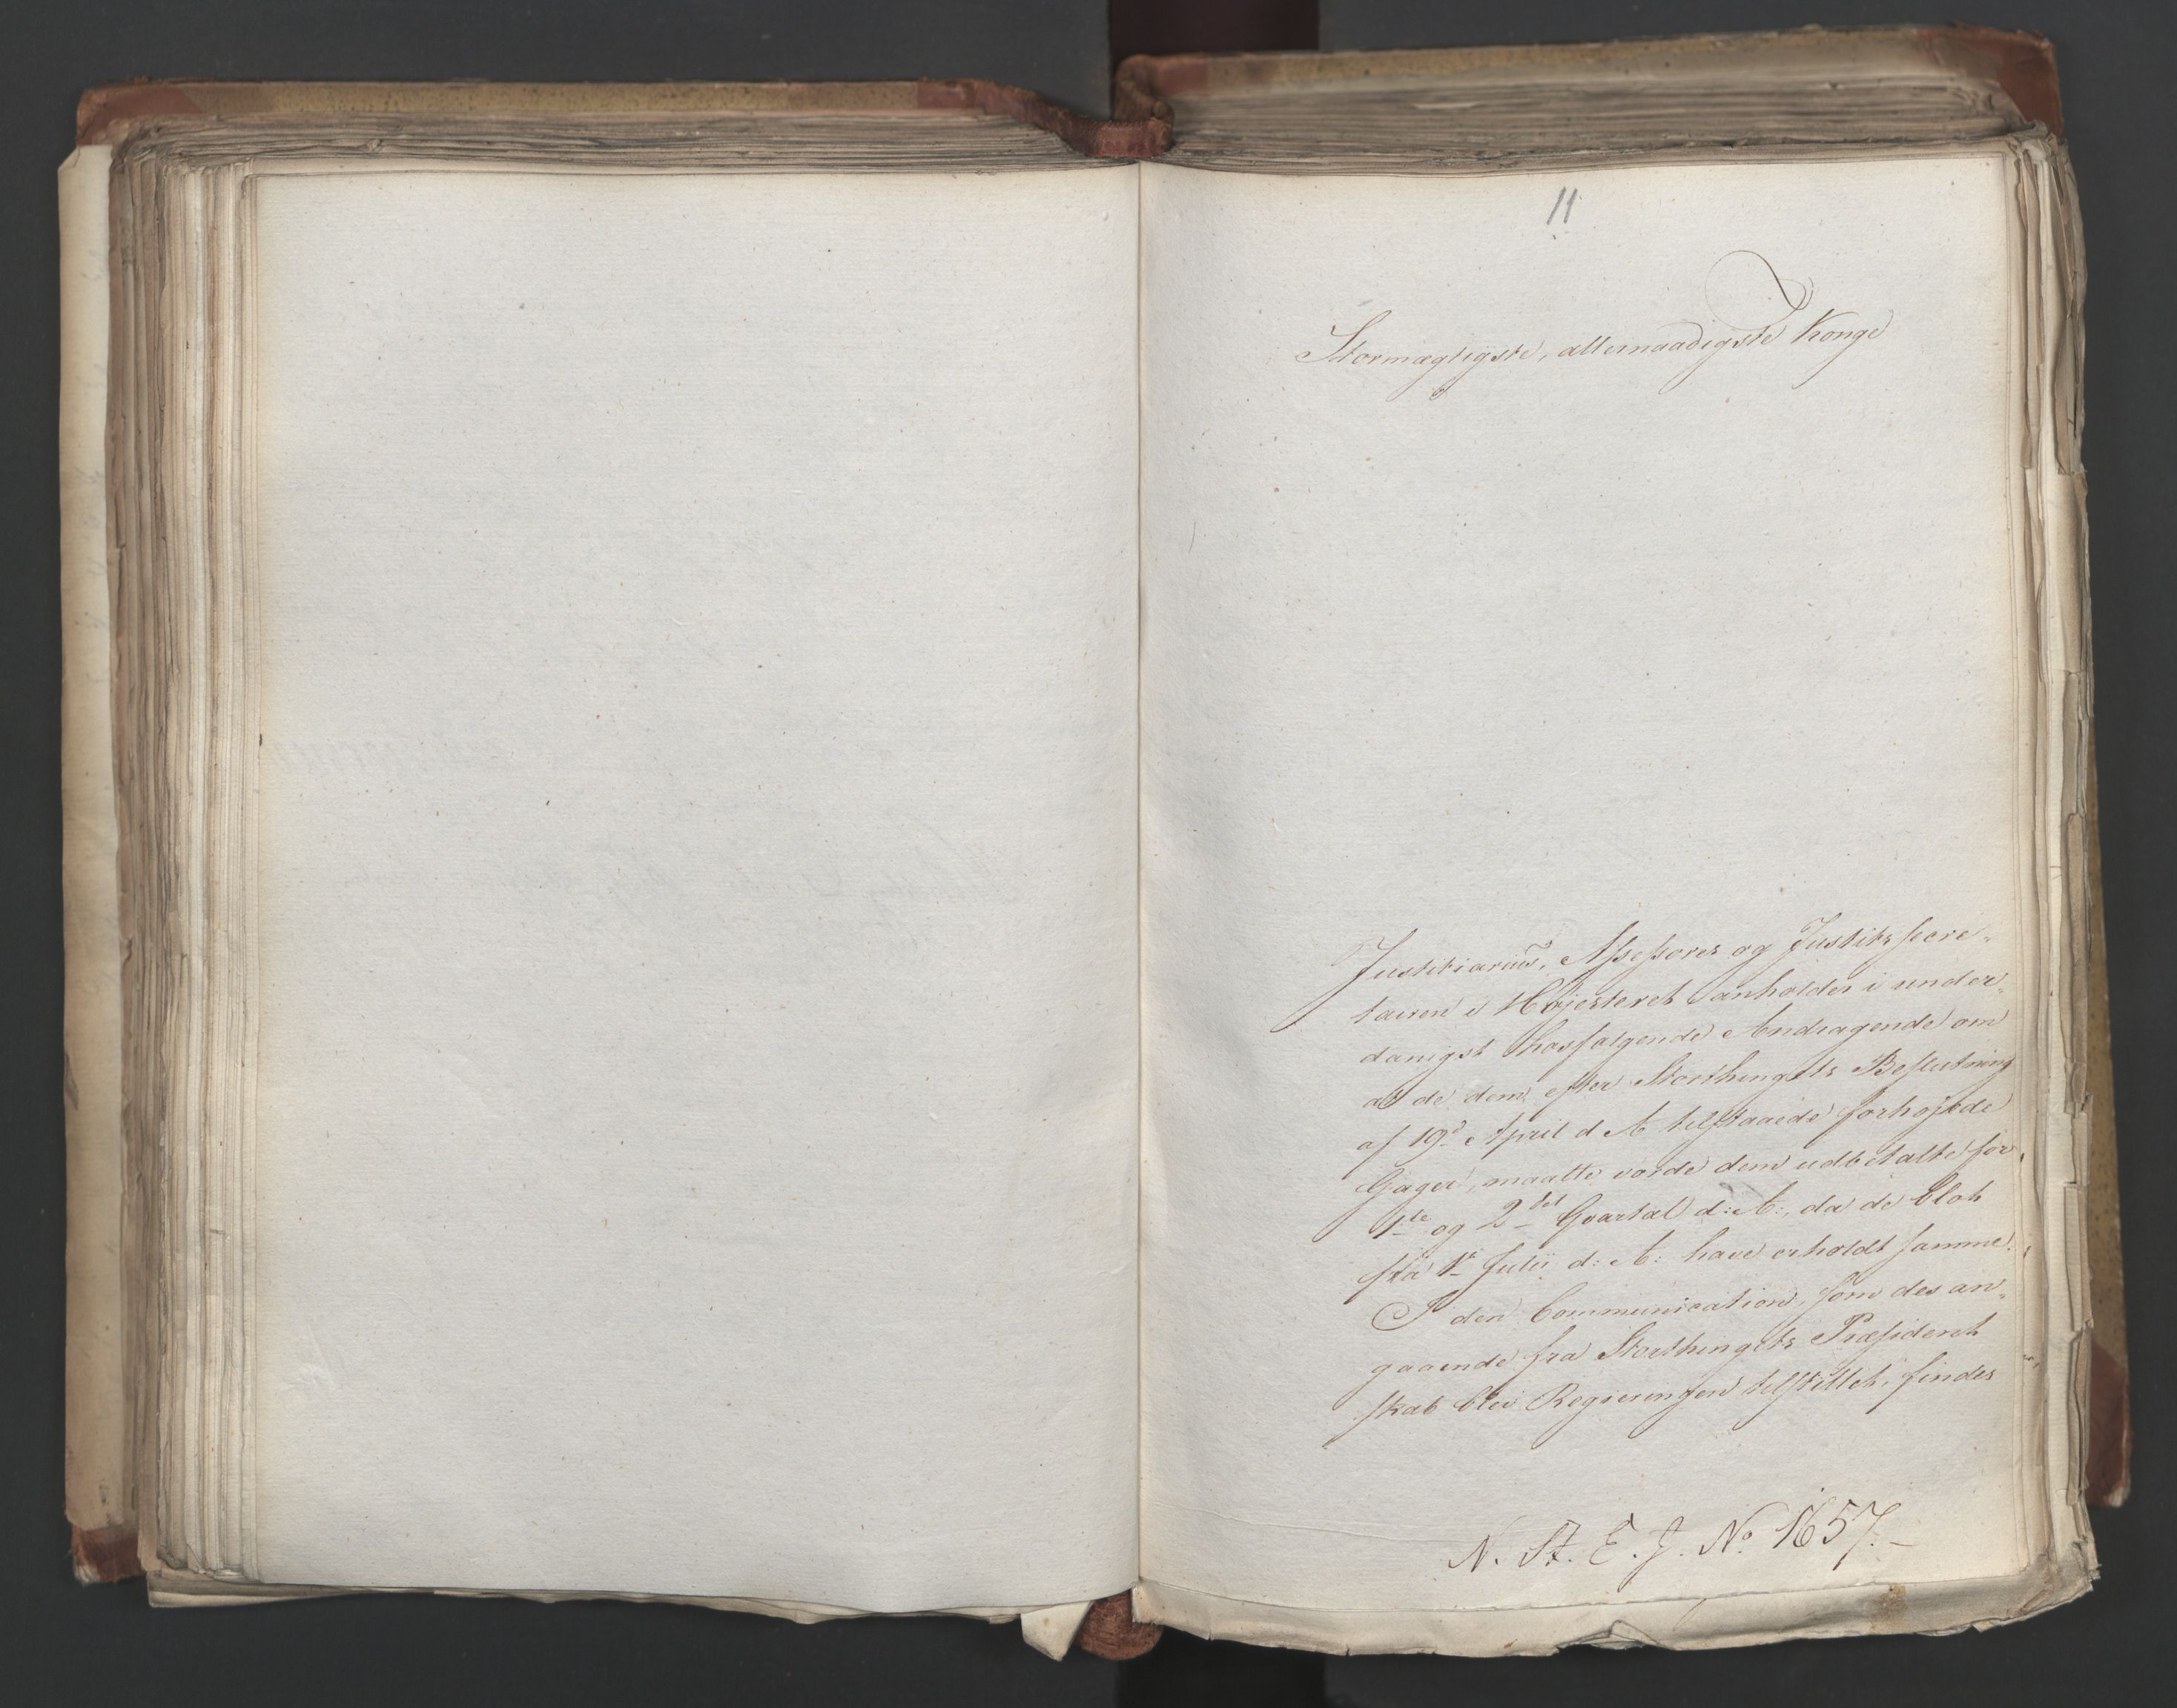 11
Stormægtigste, allernaadigste Konge
Justitiarius, Assessores og Justitssecre-
tairen i Høiesteret anholder i under-
danigst hosfølgende Andragende om
at de dem efter Storthingets Beslutning
af 19d April d A tilstaaede forhøjede
Gager, maatte vorde dem udbetalte for
1ste og 2det Qvartal d: A:, da de blot
fra 1ste Julii d: A: have erholdt samme.
I den Communication, som des an-
gaaende fra Storthingets Præsident
skab blev Regieringen tilstillet, findes
N. St. E. J. No 1657.-